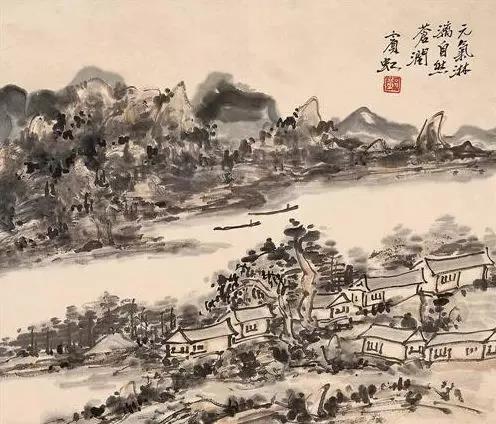 元氣淋
漓自然
蒼潤
賓虹